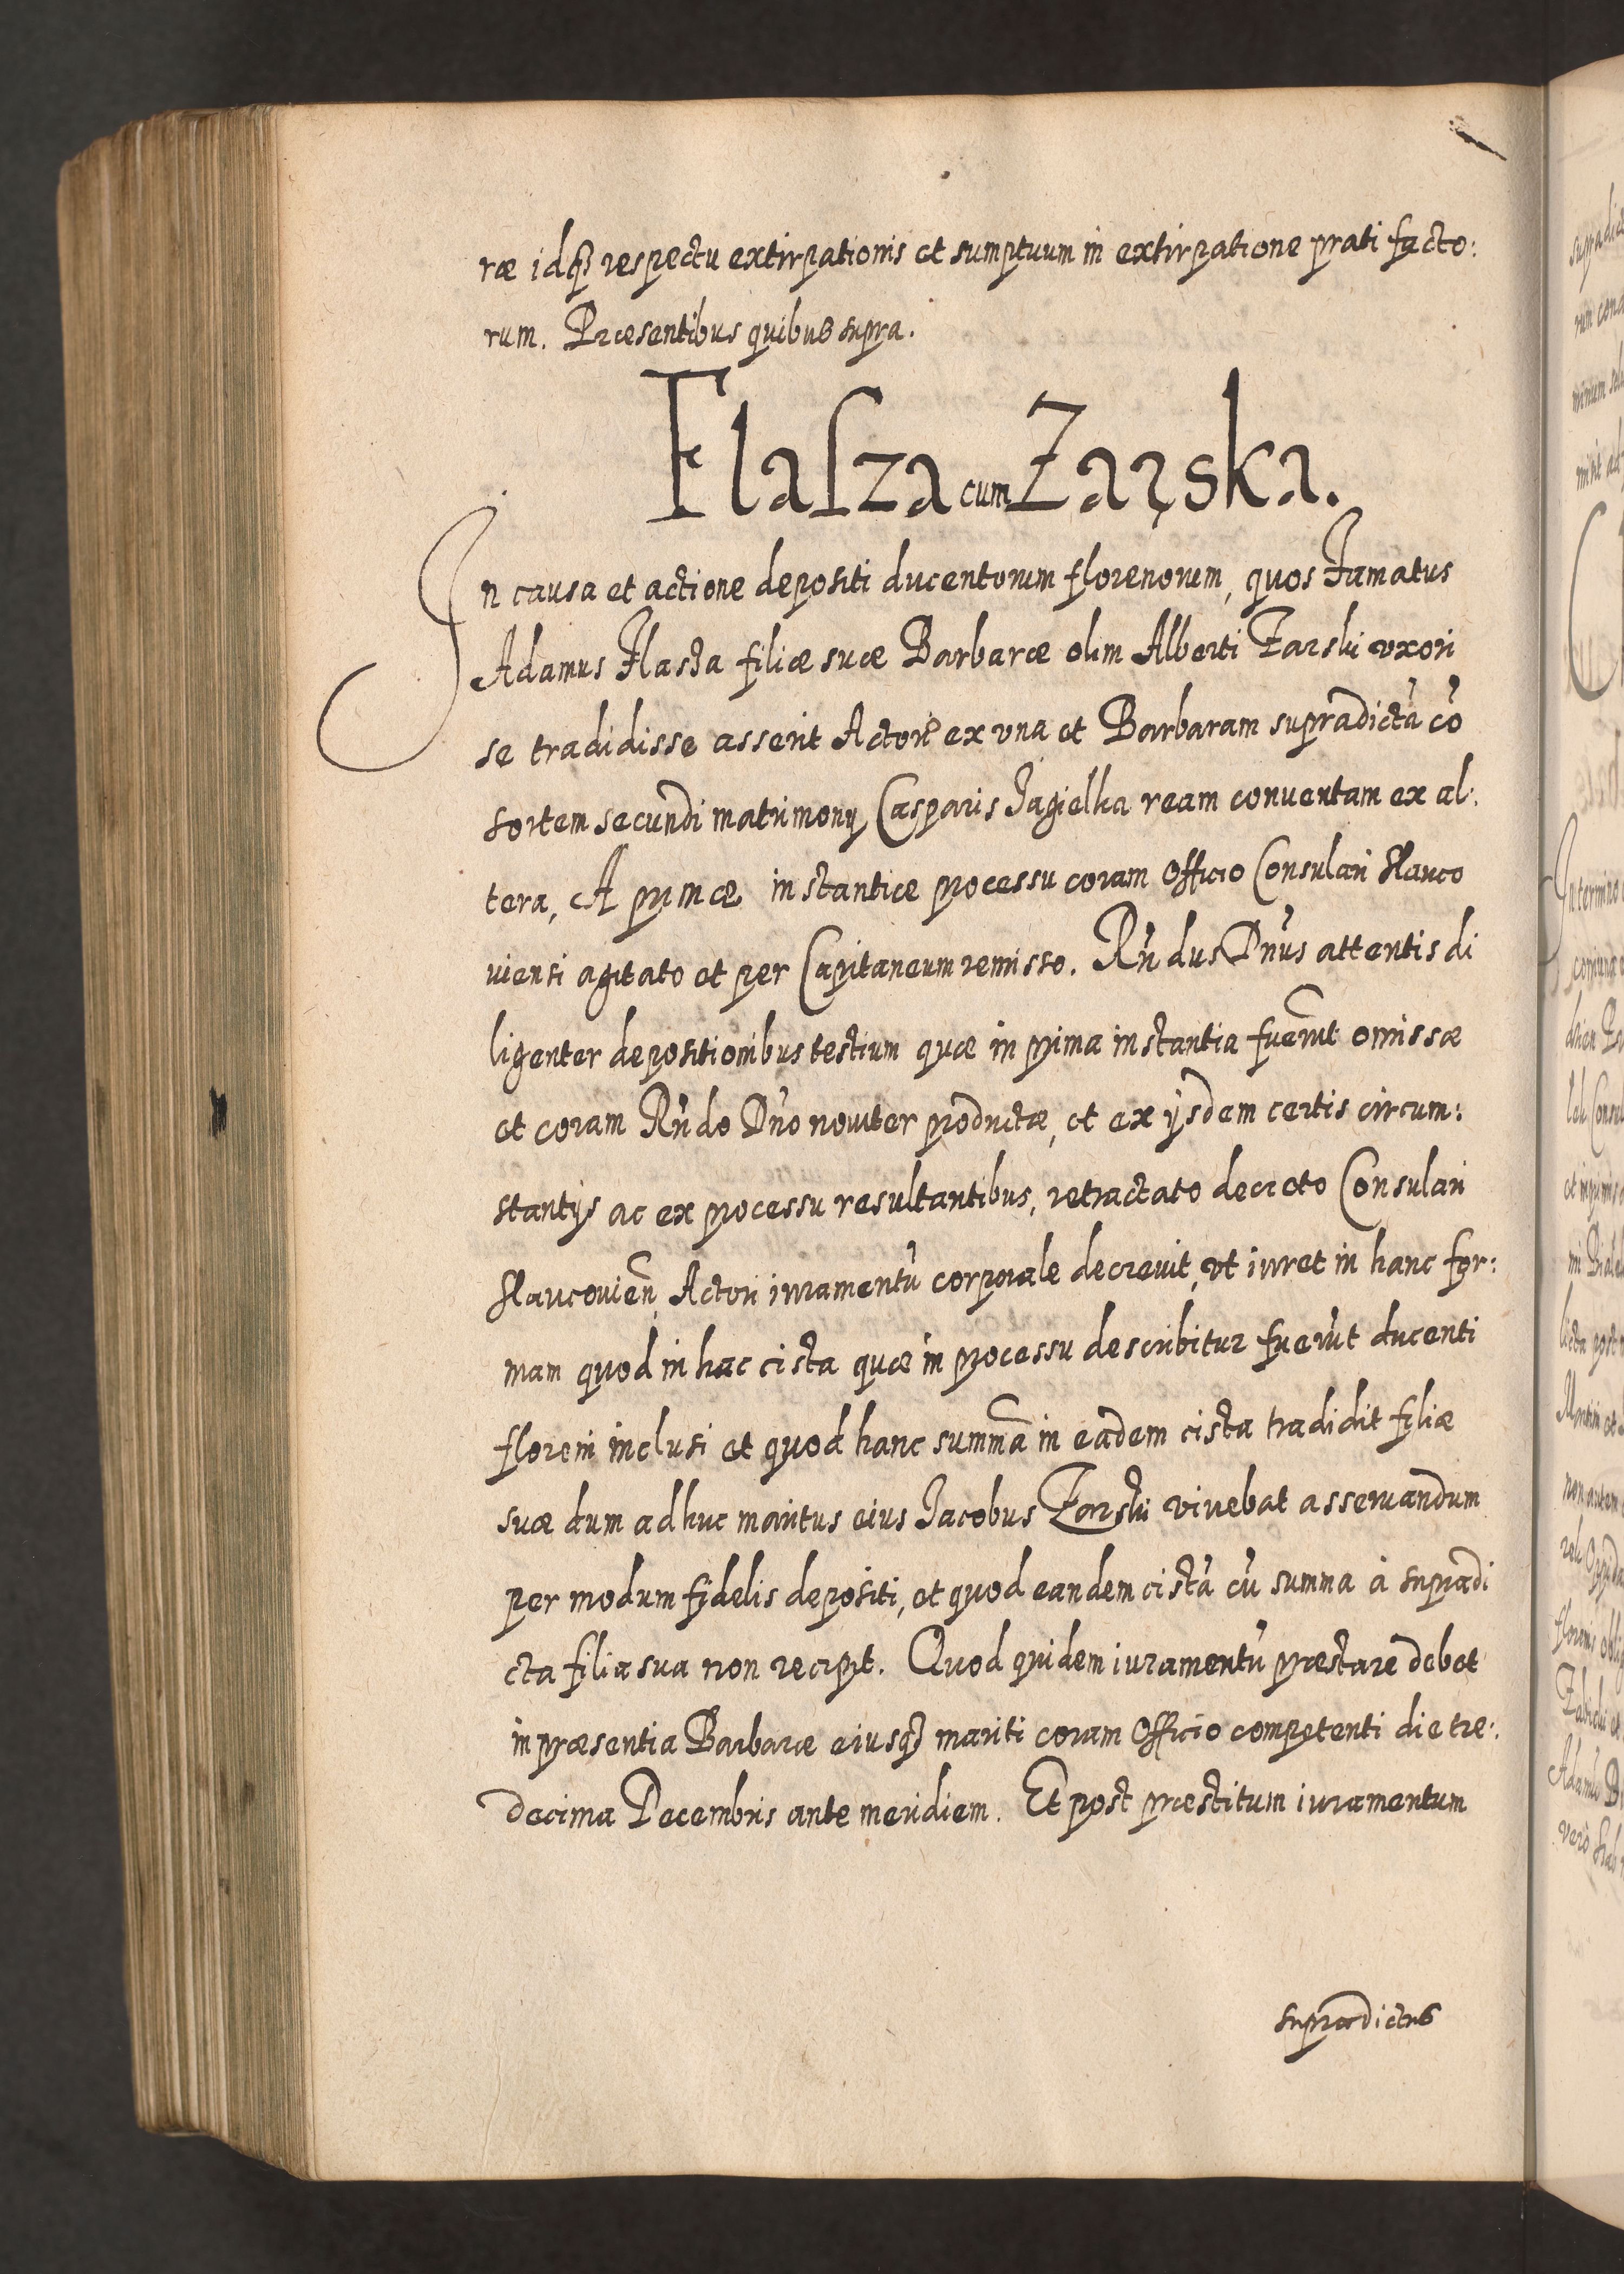 ræ idq₃ respectu extirpationis et sumptuum in extirpatione prati facto:
rum. Præsentibus quibus supra.
Flaſza cum Zarska.
In causa et actione depositi ducentorum florenorum, quos Famatus
Adamus Flasza filiæ suæ Barbaræ olim Alberti Zarski vxori
se tradidisse asserit Actorē ex vna et Barbaram supradictā cō
sortem secundi matrimonij Casparis Jagielka ream conuentam ex al:
tera, A primæ instantiæ processu coram Officio Consulari Slauco
uiensi agitato et per Capitaneum remisso. Rndus Dnus attentis di
ligenter depositionibus testium quæ in prima instantia fuerunt omissæ
et coram Rndo Dno nouiter productæ, et ex ijsdem certis circum:
stantijs ac ex processu resultantibus, retractato decreto Consulari
Slaucouien, Actori iuramentū corporale decreuit, vt iuret in hanc for:
mam quod in hac cista quæ in processu describitur fuerūt ducenti
floreni inclusi et quod hanc summā in eadem cista tradidit filiæ
suæ dum adhuc maritus eius Jacobus Zarski viuebat asseruandum
per modum fidelis depositi, et quod eandem cistā cū summa à supradi
cta filia sua non recipit. Quod quidem iuramentū præstare debet
in præsentia Barbaræ eiusq₃ mariti coram Officio competenti die tre:
decima Decembris ante meridiem. Et post præstitum iuramentum
supradictus